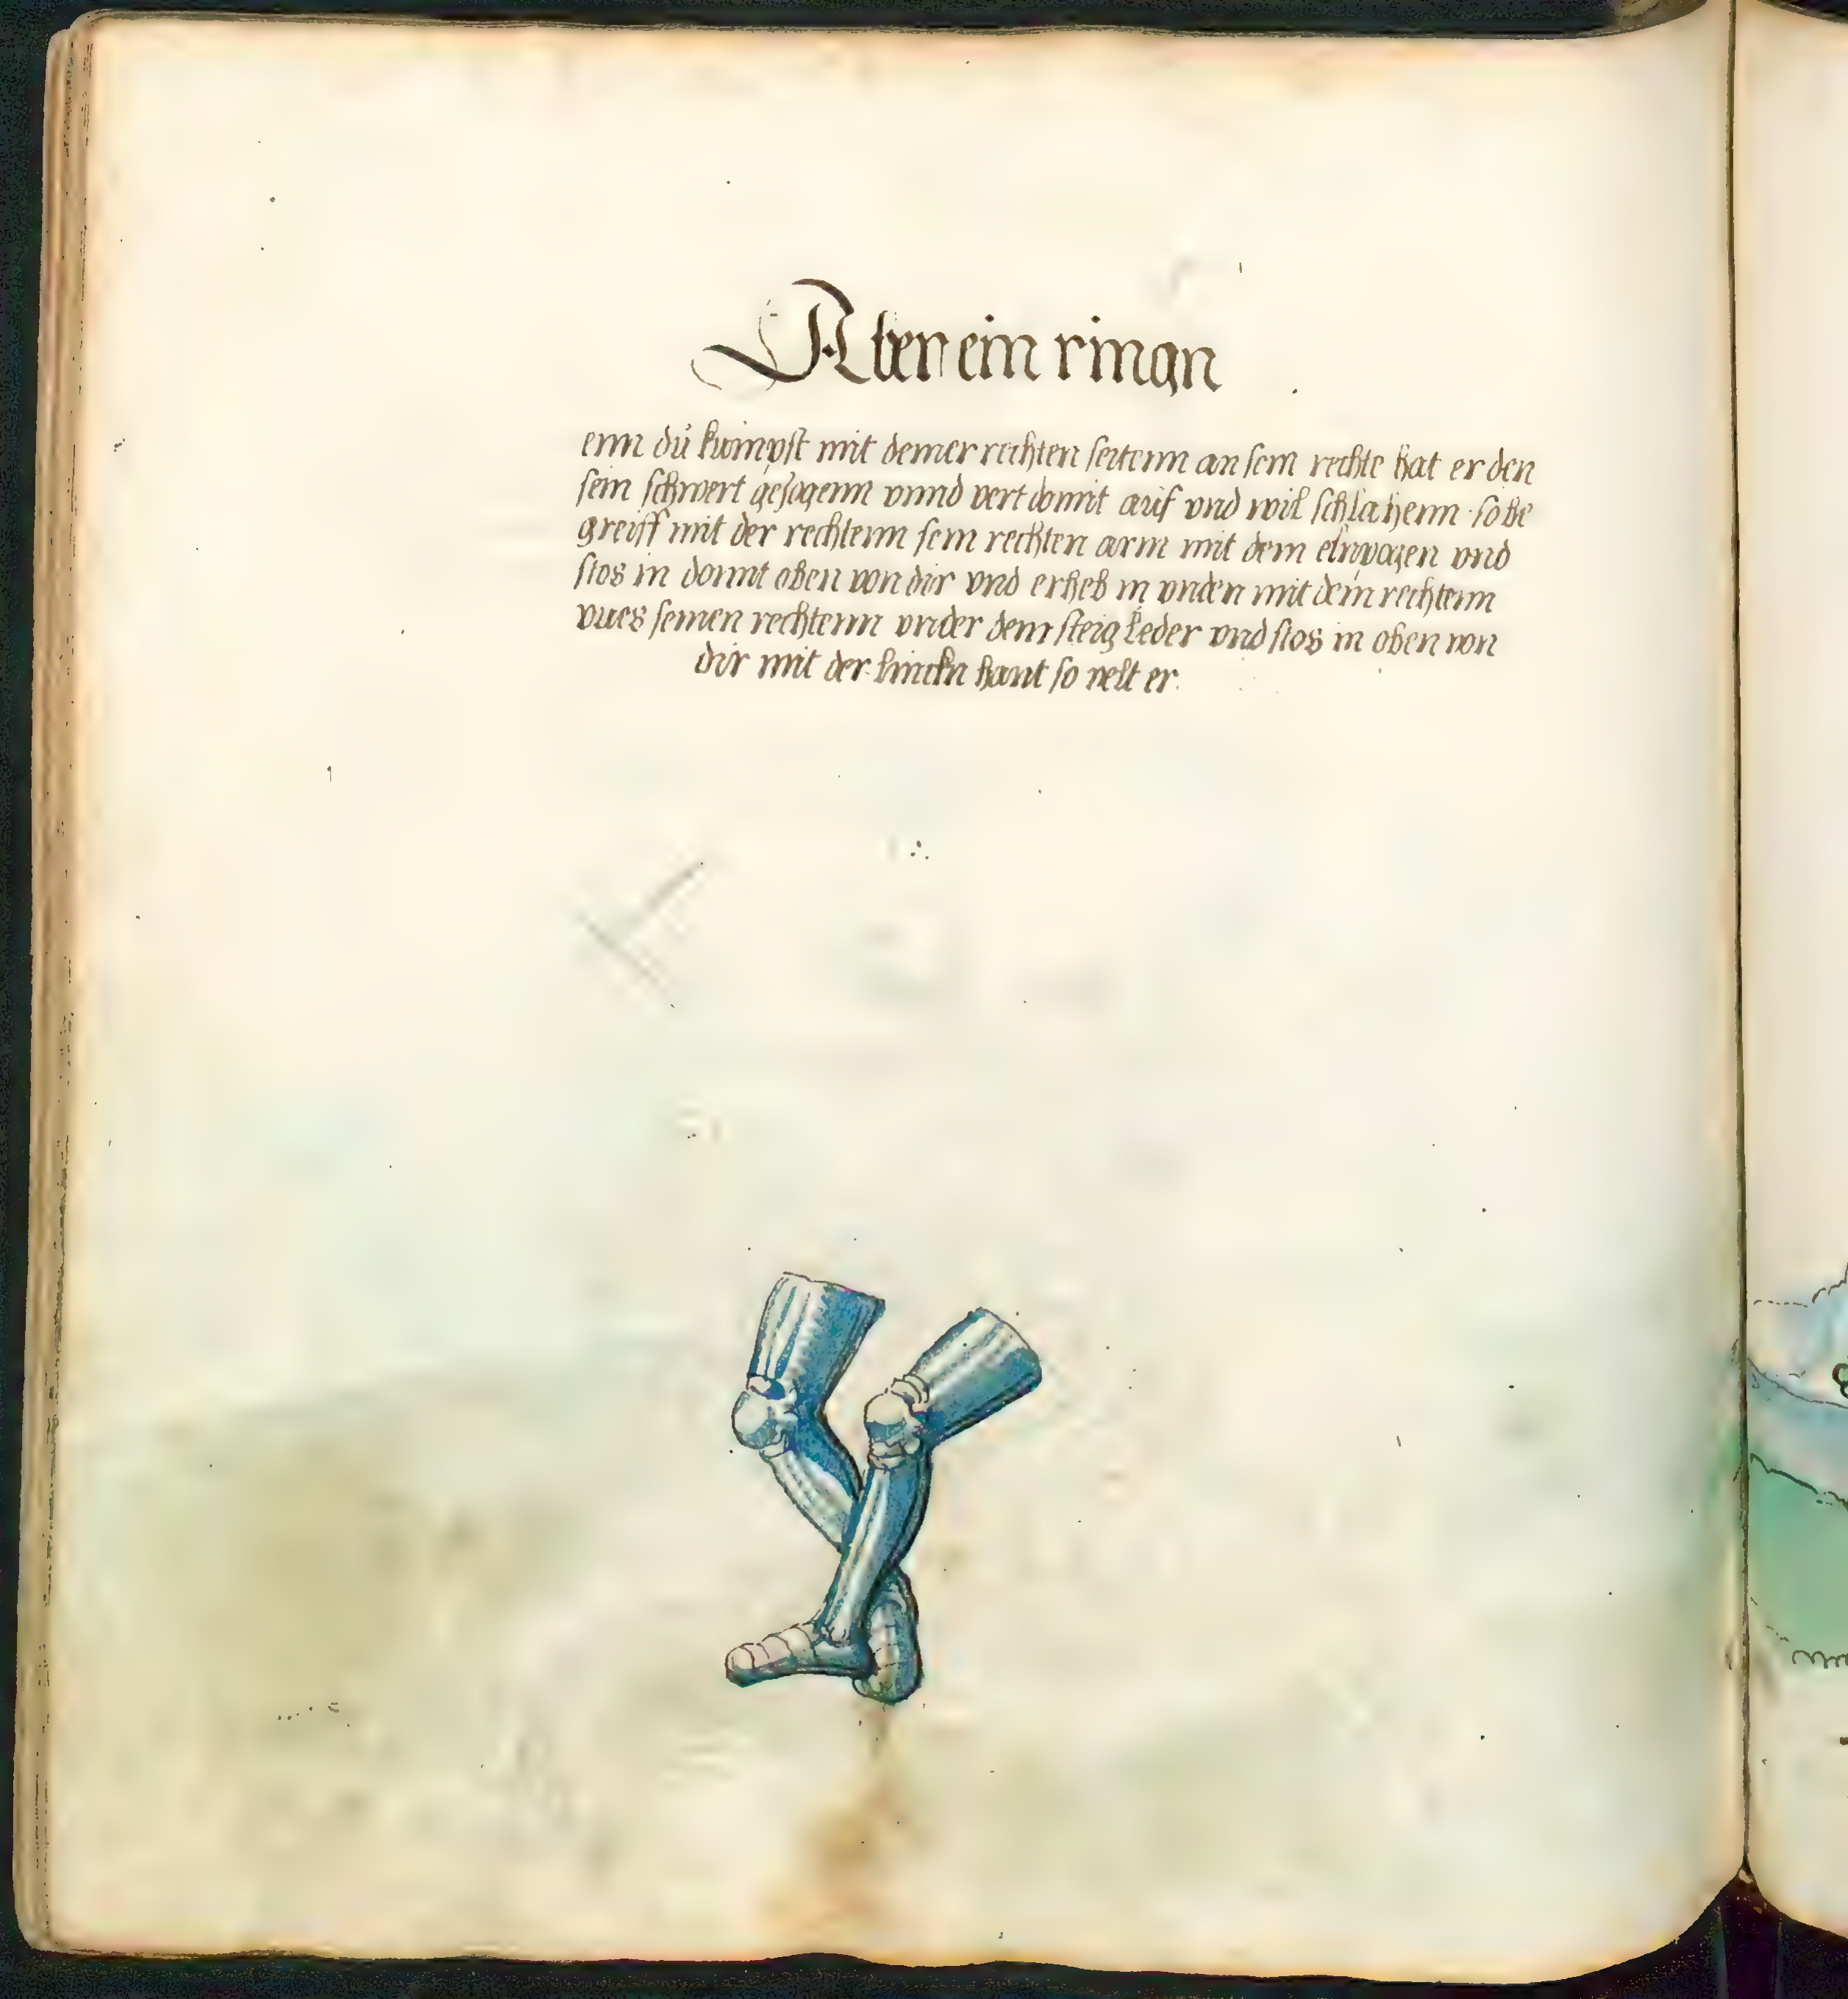 Aber ein ringn
enn dü kumpst mit deiner rechten seitenn an sein rechte hat er den
sein schwert gezogenn vnnd vert domit auf vnd wil schlahenn · so be
greiff mit der rechtenn sein rechten arm mit dem elnpogen vnd
stos in domit oben von dir vnd erheb in vnden mit deim rechtenn
vues seinen rechtenn vnder dem steig leder vnd stos in oben von
dir mit der linckn hant so velt er.